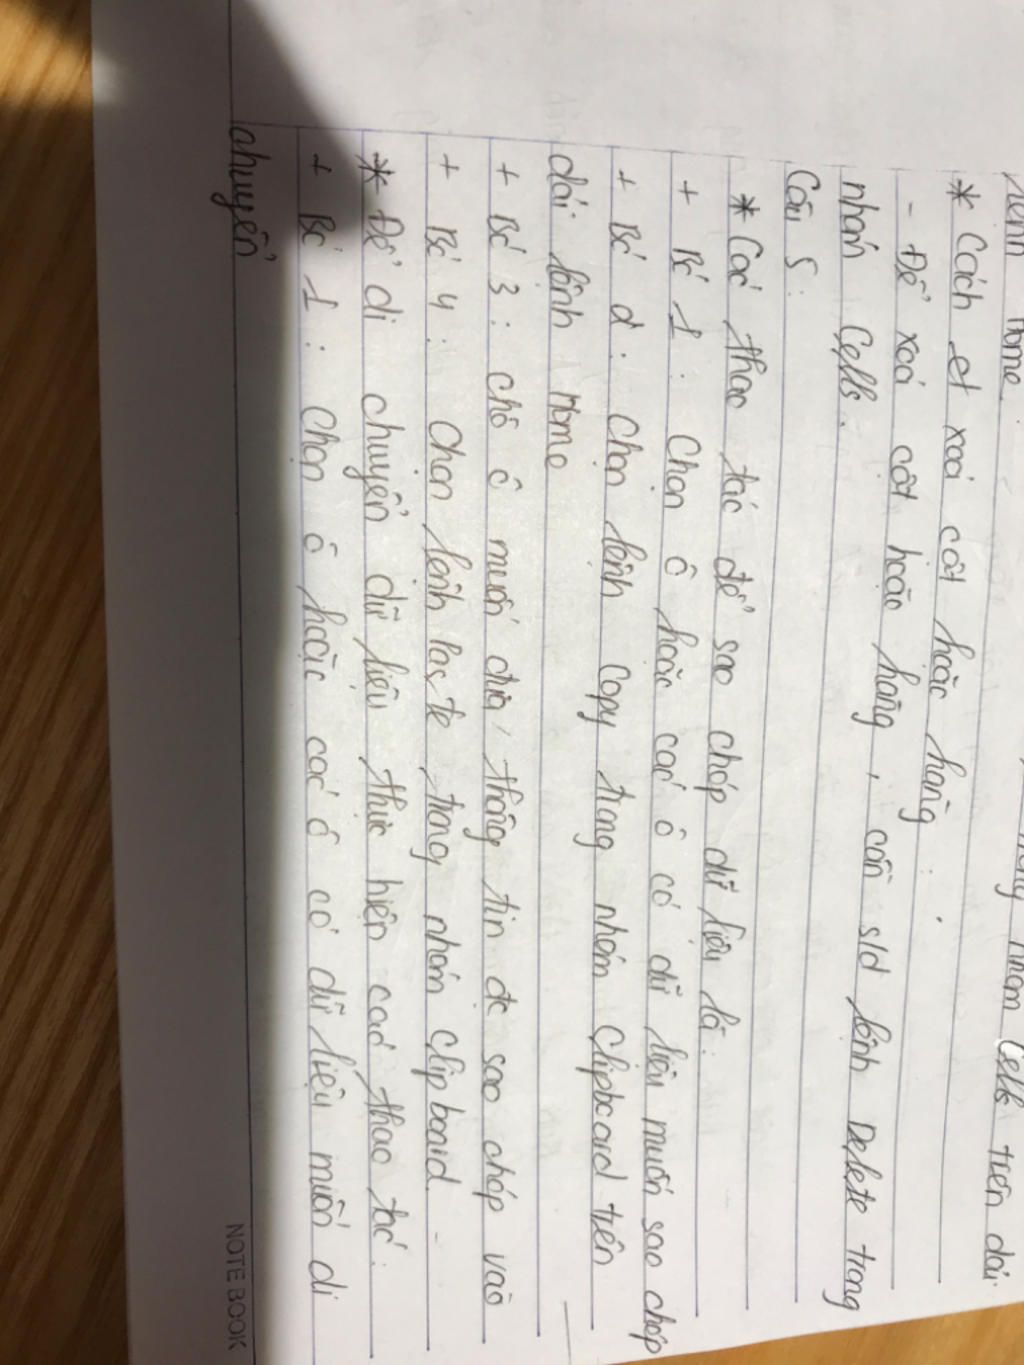 lệnh Home. nhóm Cells trên dải
* Cách et xoá cột hoặc hàng :
- Để xoá cột hoặc hàng, cần s/d lệnh Delete trong
nhóm Cells.
Câu 5:
* Các thao tác để sao chép dữ liệu là:
+ Bć 1: Chọn ô hoặc các ô có dữ liệu muốn sao chép
+ Bć 2: Chọn lệnh Copy trong nhóm Clipboard trên
dải lệnh Home
+ Bć 3: chô ô muốn chứa thông tin đc sao chép vào
+ Bć 4: Chọn lệnh Paste trong nhóm Clipboard.
* Để di chuyển dữ liệu thực hiện các thao tác:
+ Bć 1: Chọn ô hoặc các ô có dữ liệu muốn di
chuyển
NOTEBOOK